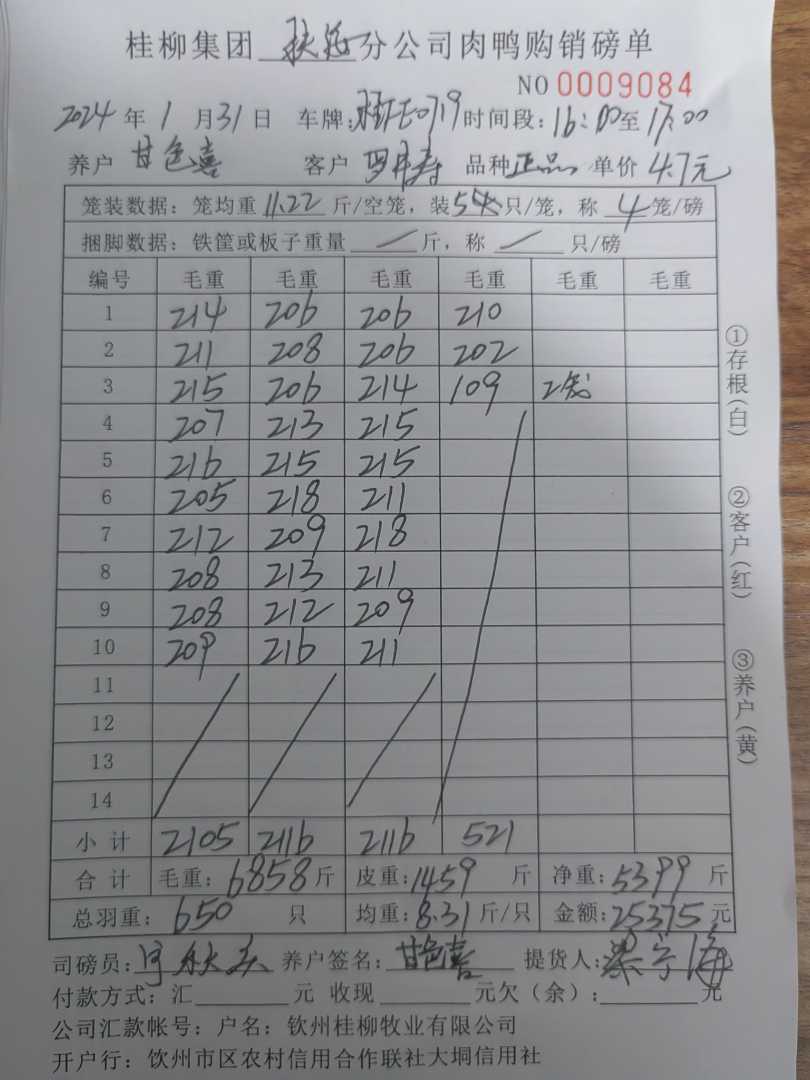 桂柳集团 分公司肉鸭购销磅单
NO 0009084
2024 年 1 月 31 日 车牌: 时间段: 16:00 至 17:00
养户 甘色喜 客户 品种 正品 单价 4.7元
笼装数据: 笼均重 11.22 斤/空笼, 装 5 只/笼, 称 4 笼/磅
捆脚数据: 铁筐或板子重量 / 斤, 称 / 只/磅
编号 毛重 毛重 毛重 毛重 毛重 毛重
1 214 206 206 210
2 211 208 206 202
3 215 206 214 109 2笼
4 207 213 215
5 216 215 215
6 205 218 211
7 212 209 218
8 208 213 211
9 208 212 209
10 209 216 211
11
12
13
14
小计 2105 2116 2116 521
合计 毛重: 6858 斤 皮重: 1459 斤 净重: 5399 斤
总羽重: 650 只 均重: 8.31 斤/只 金额: 25375 元
司磅员: 养户签名: 甘色喜 提货人:
付款方式: 汇 元 收现 元欠(余): 元
公司汇款帐号: 户名: 钦州桂柳牧业有限公司
开户行: 钦州市区农村信用合作联社大垌信用社
①存根(白)
②客户(红)
③养户(黄)